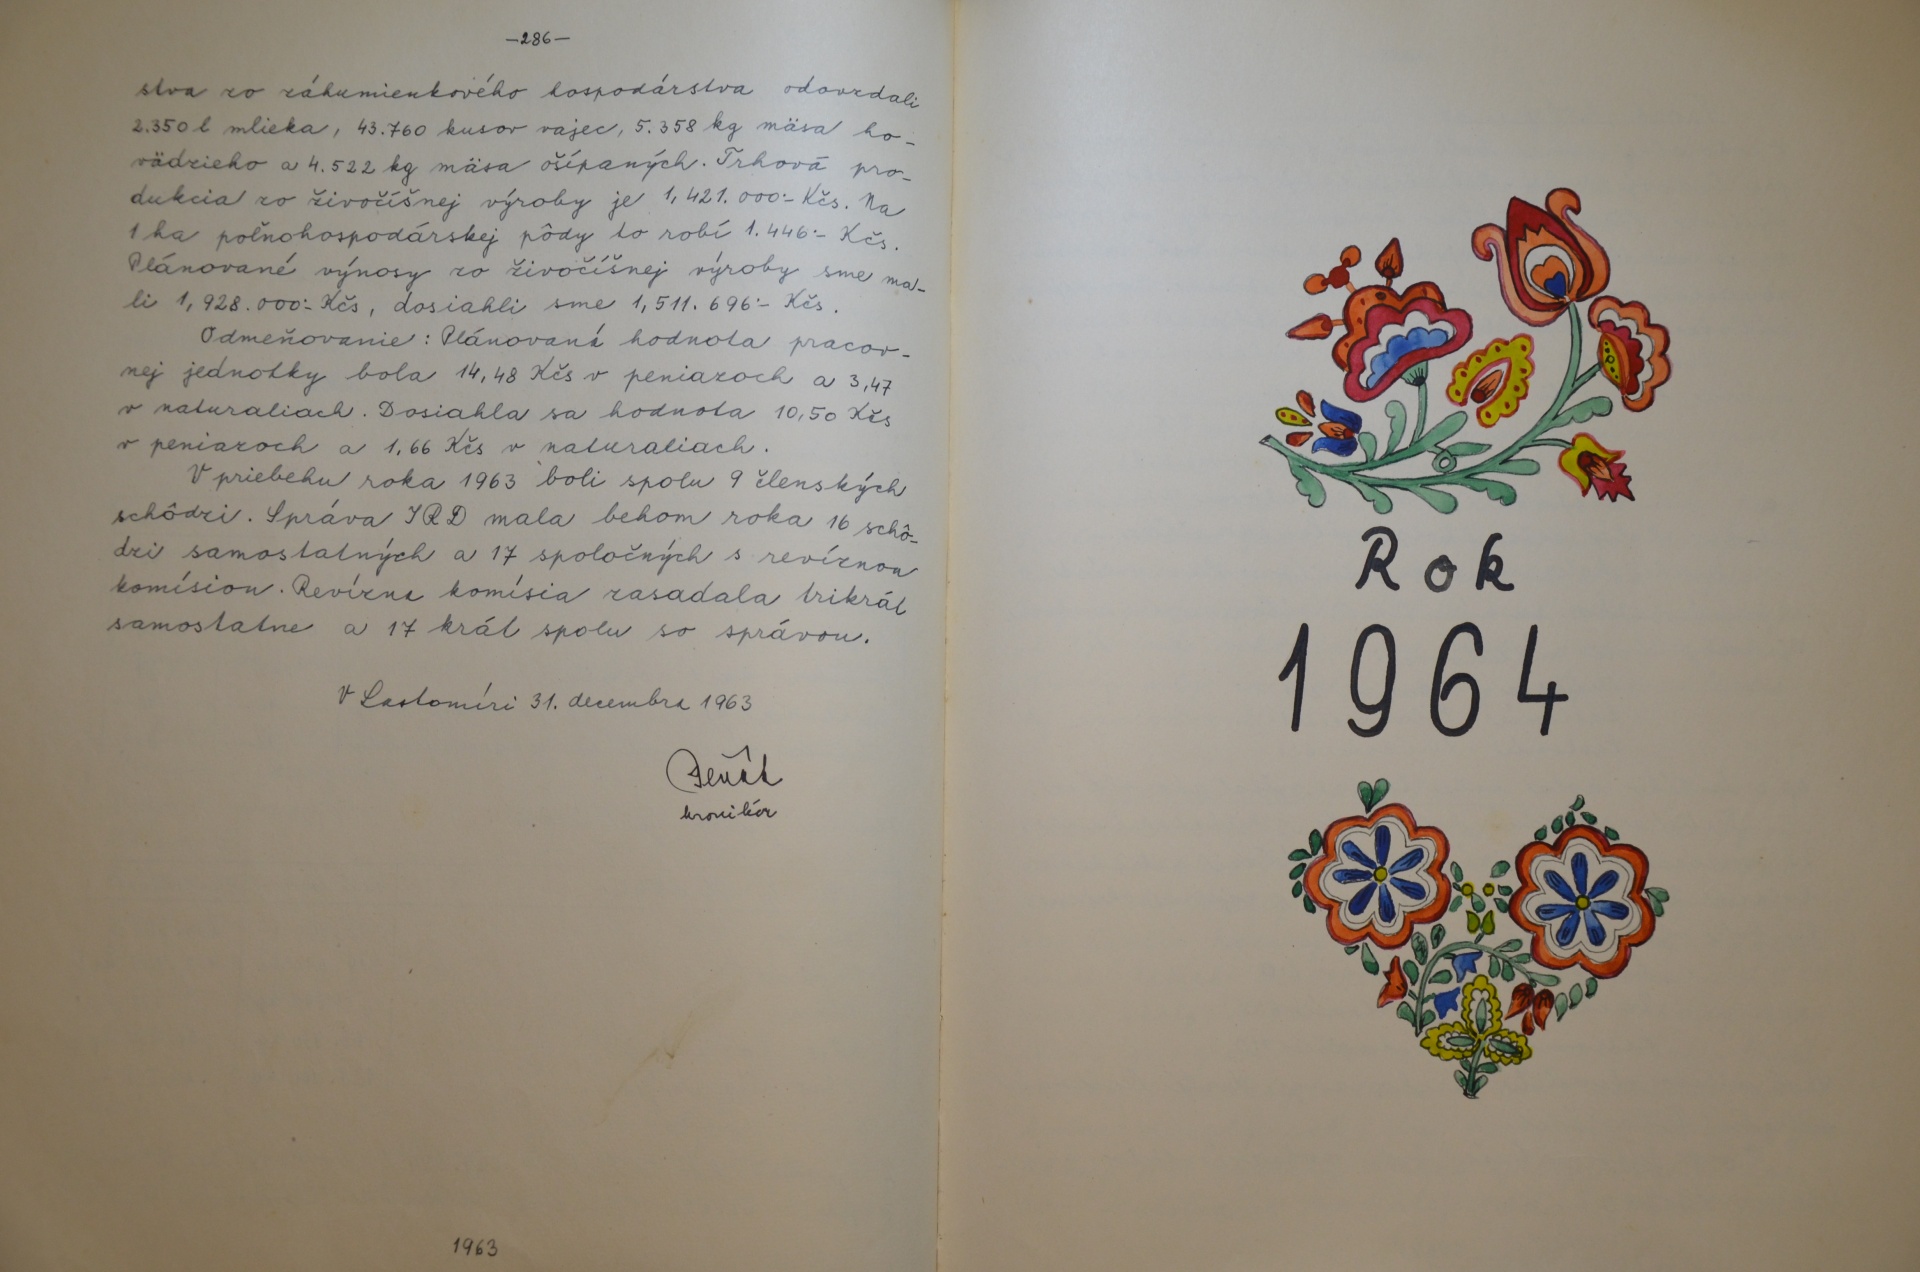 -286-
stva zo záhumienkového hospodárstva odovzdali
2.350 l mlieka, 43.760 kusov vajec, 5.358 kg mäsa ho-
vädzieho a 4.522 kg mäsa ošípaných. Trhová pro-
dukcia zo živočíšnej výroby je 1,421.000:- Kčs. Na
1 ha poľnohospodárskej pôdy to robí 1.446:- Kčs.
Plánované výnosy zo živočíšnej výroby sme ma-
li 1,928.000:- Kčs, dosiahli sme 1,511.696:- Kčs.
Odmeňovanie: Plánovaná hodnota pracov-
nej jednotky bola 14,48 Kčs v peniazoch a 3,47
v naturaliach. Dosiahla sa hodnota 10,50 Kčs
v peniazoch a 1,66 Kčs v naturaliach.
V priebehu roka 1963 boli spolu 9 členských
schôdzi. Správa JRD mala behom roka 16 schô-
dzi samostatných a 17 spoločných s revíznou
komísiou. Revízna komísia zasadala trikrát
samostatne a 17 krát spolu so správou.
V Lastomíri 31. decembra 1963
kronikár
1963
Rok
1964